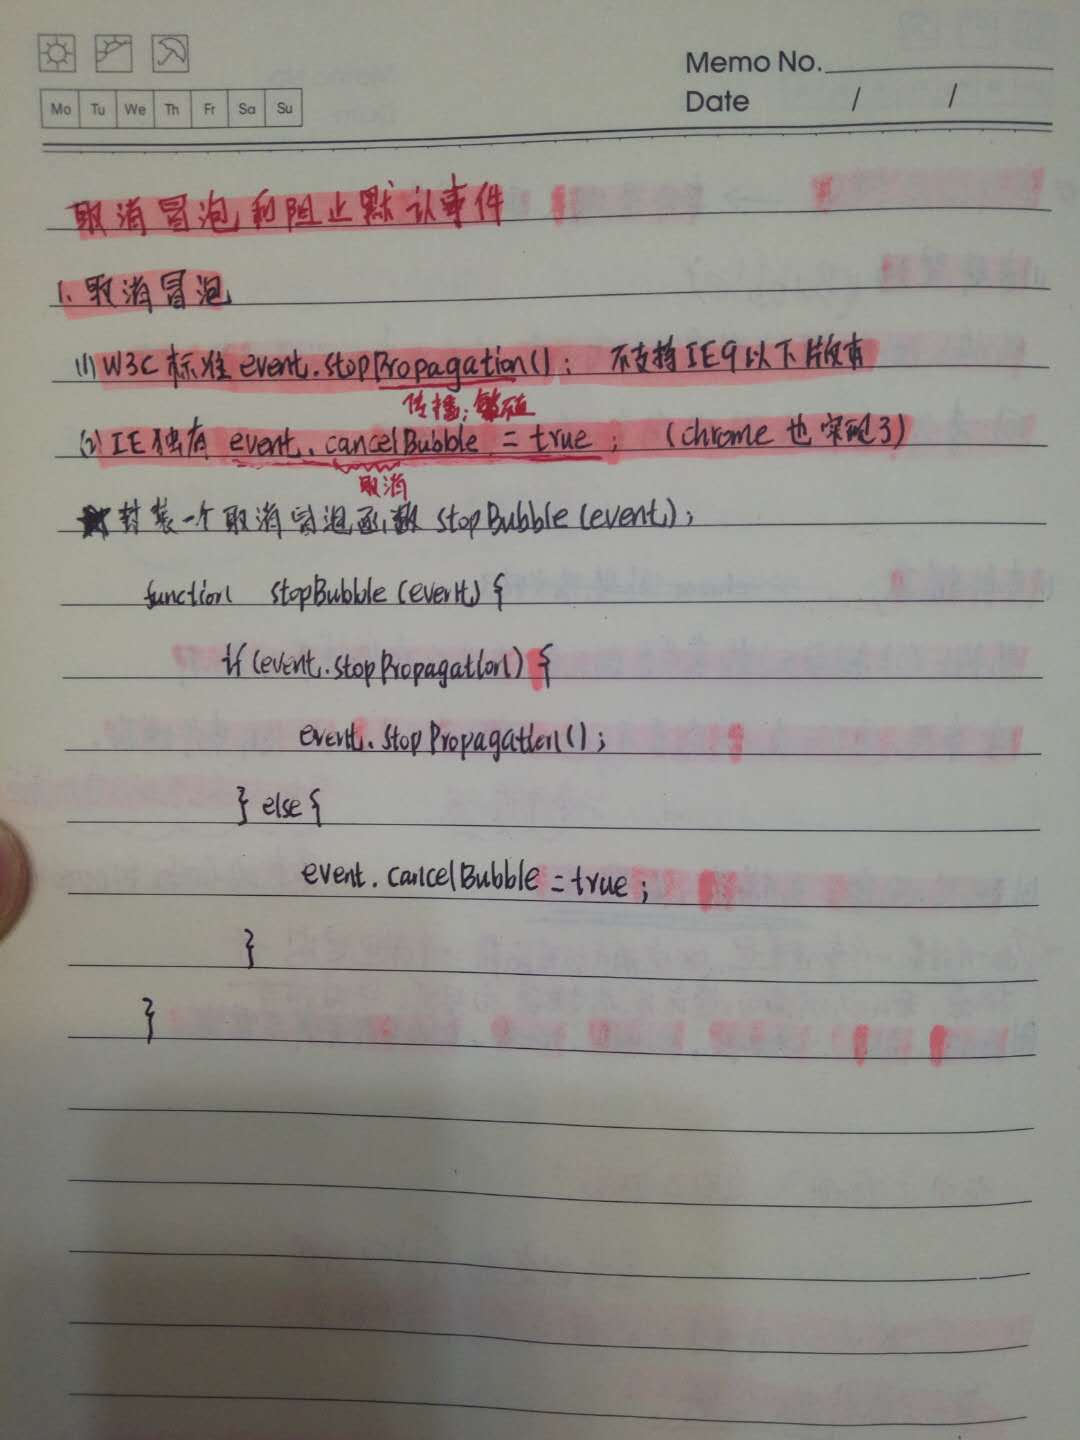 Memo No.
Date / /
Mo Tu We Th Fr Sa Su
取消冒泡和阻止默认事件
1. 取消冒泡
(1) W3C 标准 event.stopPropagation(); 不支持IE9以下版本
传播;繁殖
(2) IE独有 event.cancelBubble = true; (chrome也实现了)
取消
封装一个取消冒泡函数 stopBubble(event);
function stopBubble(event) {
if (event.stopPropagation) {
event.stopPropagation();
} else {
event.cancelBubble = true;
}
}